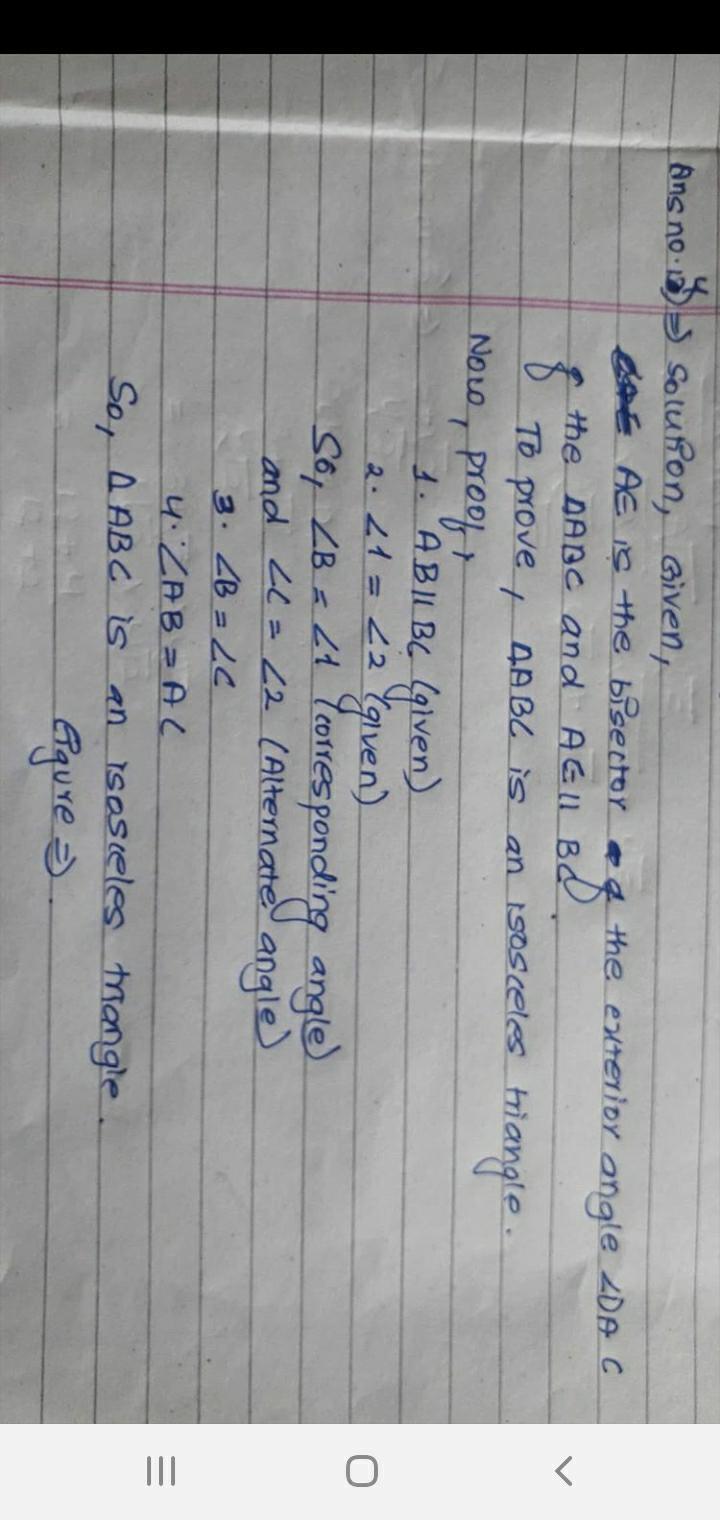 Ans no. 4) ⇒ Solution, Given,
AE is the bisector of the exterior angle ∠DAC
of the ΔABC and AE || BC
To prove, ΔABC is an isosceles triangle.
Now, proof,
1. AB || BC (given)
2. ∠1 = ∠2 (given)
So, ∠B = ∠1 (corresponding angle)
and ∠C = ∠2 (Alternate angle)
3. ∠B = ∠C
4. ∠AB = AC
So, ΔABC is an isosceles triangle.
figure ⇒